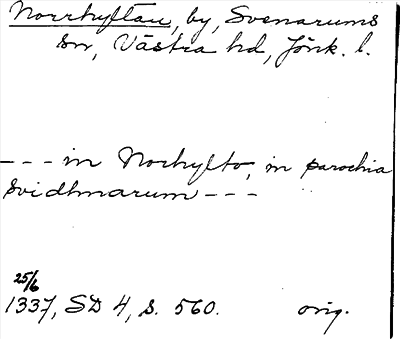 Norrhyltan, by, Svenarums
sn, Västra hd, Jönk. l.
--- in Norhylto, in parochia
Svidhmarum ---
25/6
1337, SD 4, s. 560. orig.